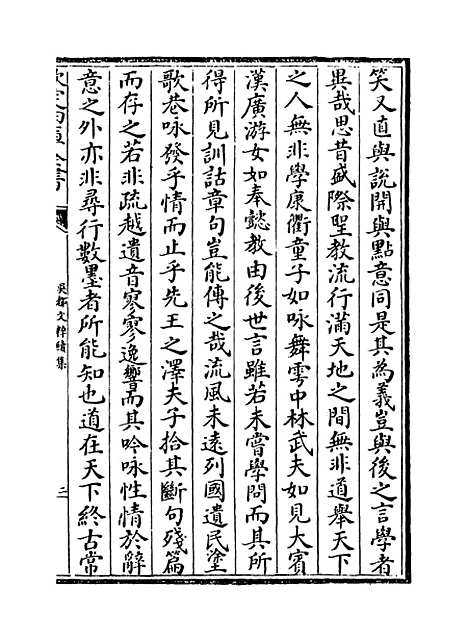 笑又直與說開與點意同是其為義豈與後之言學者
異哉思昔盛際聖教流行滿天地之間無非道舉天下
之人無非學康衢童子如咏舞雩中林武夫如見大賓
漢廣游女如奉懿教由後世言雖若未嘗學問而其所
得所見訓詁章句豈能傳之哉流風未遠列國遺民塗
歌巷咏發乎情而止乎先王之澤夫子拾其斷句殘篇
而存之若非疏越遺音寥寥逸響而其吟咏性情於辭
意之外亦非尋行數墨者所能知也道在天下終古常
欽定四庫全書
吳都文粹續集
三